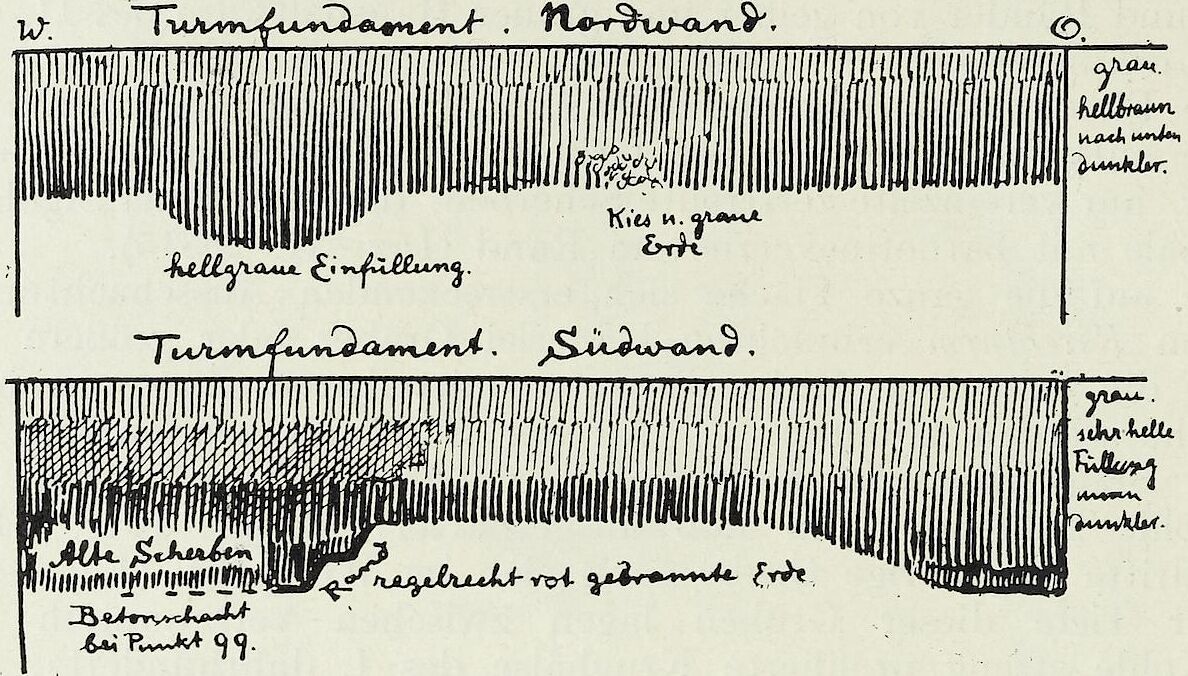 W. Turmfundament. Nordwand. O.
grau.
hellbraun
nach unten
dunkler.
Kies u. graue
Erde
hellgraue Einfüllung.
Turmfundament. Südwand.
grau.
sehr helle
Füllung
dunkler.
Alte Scherben
Rand regelrecht rot gebrannte Erde
Betonschacht
bei Punkt 99.